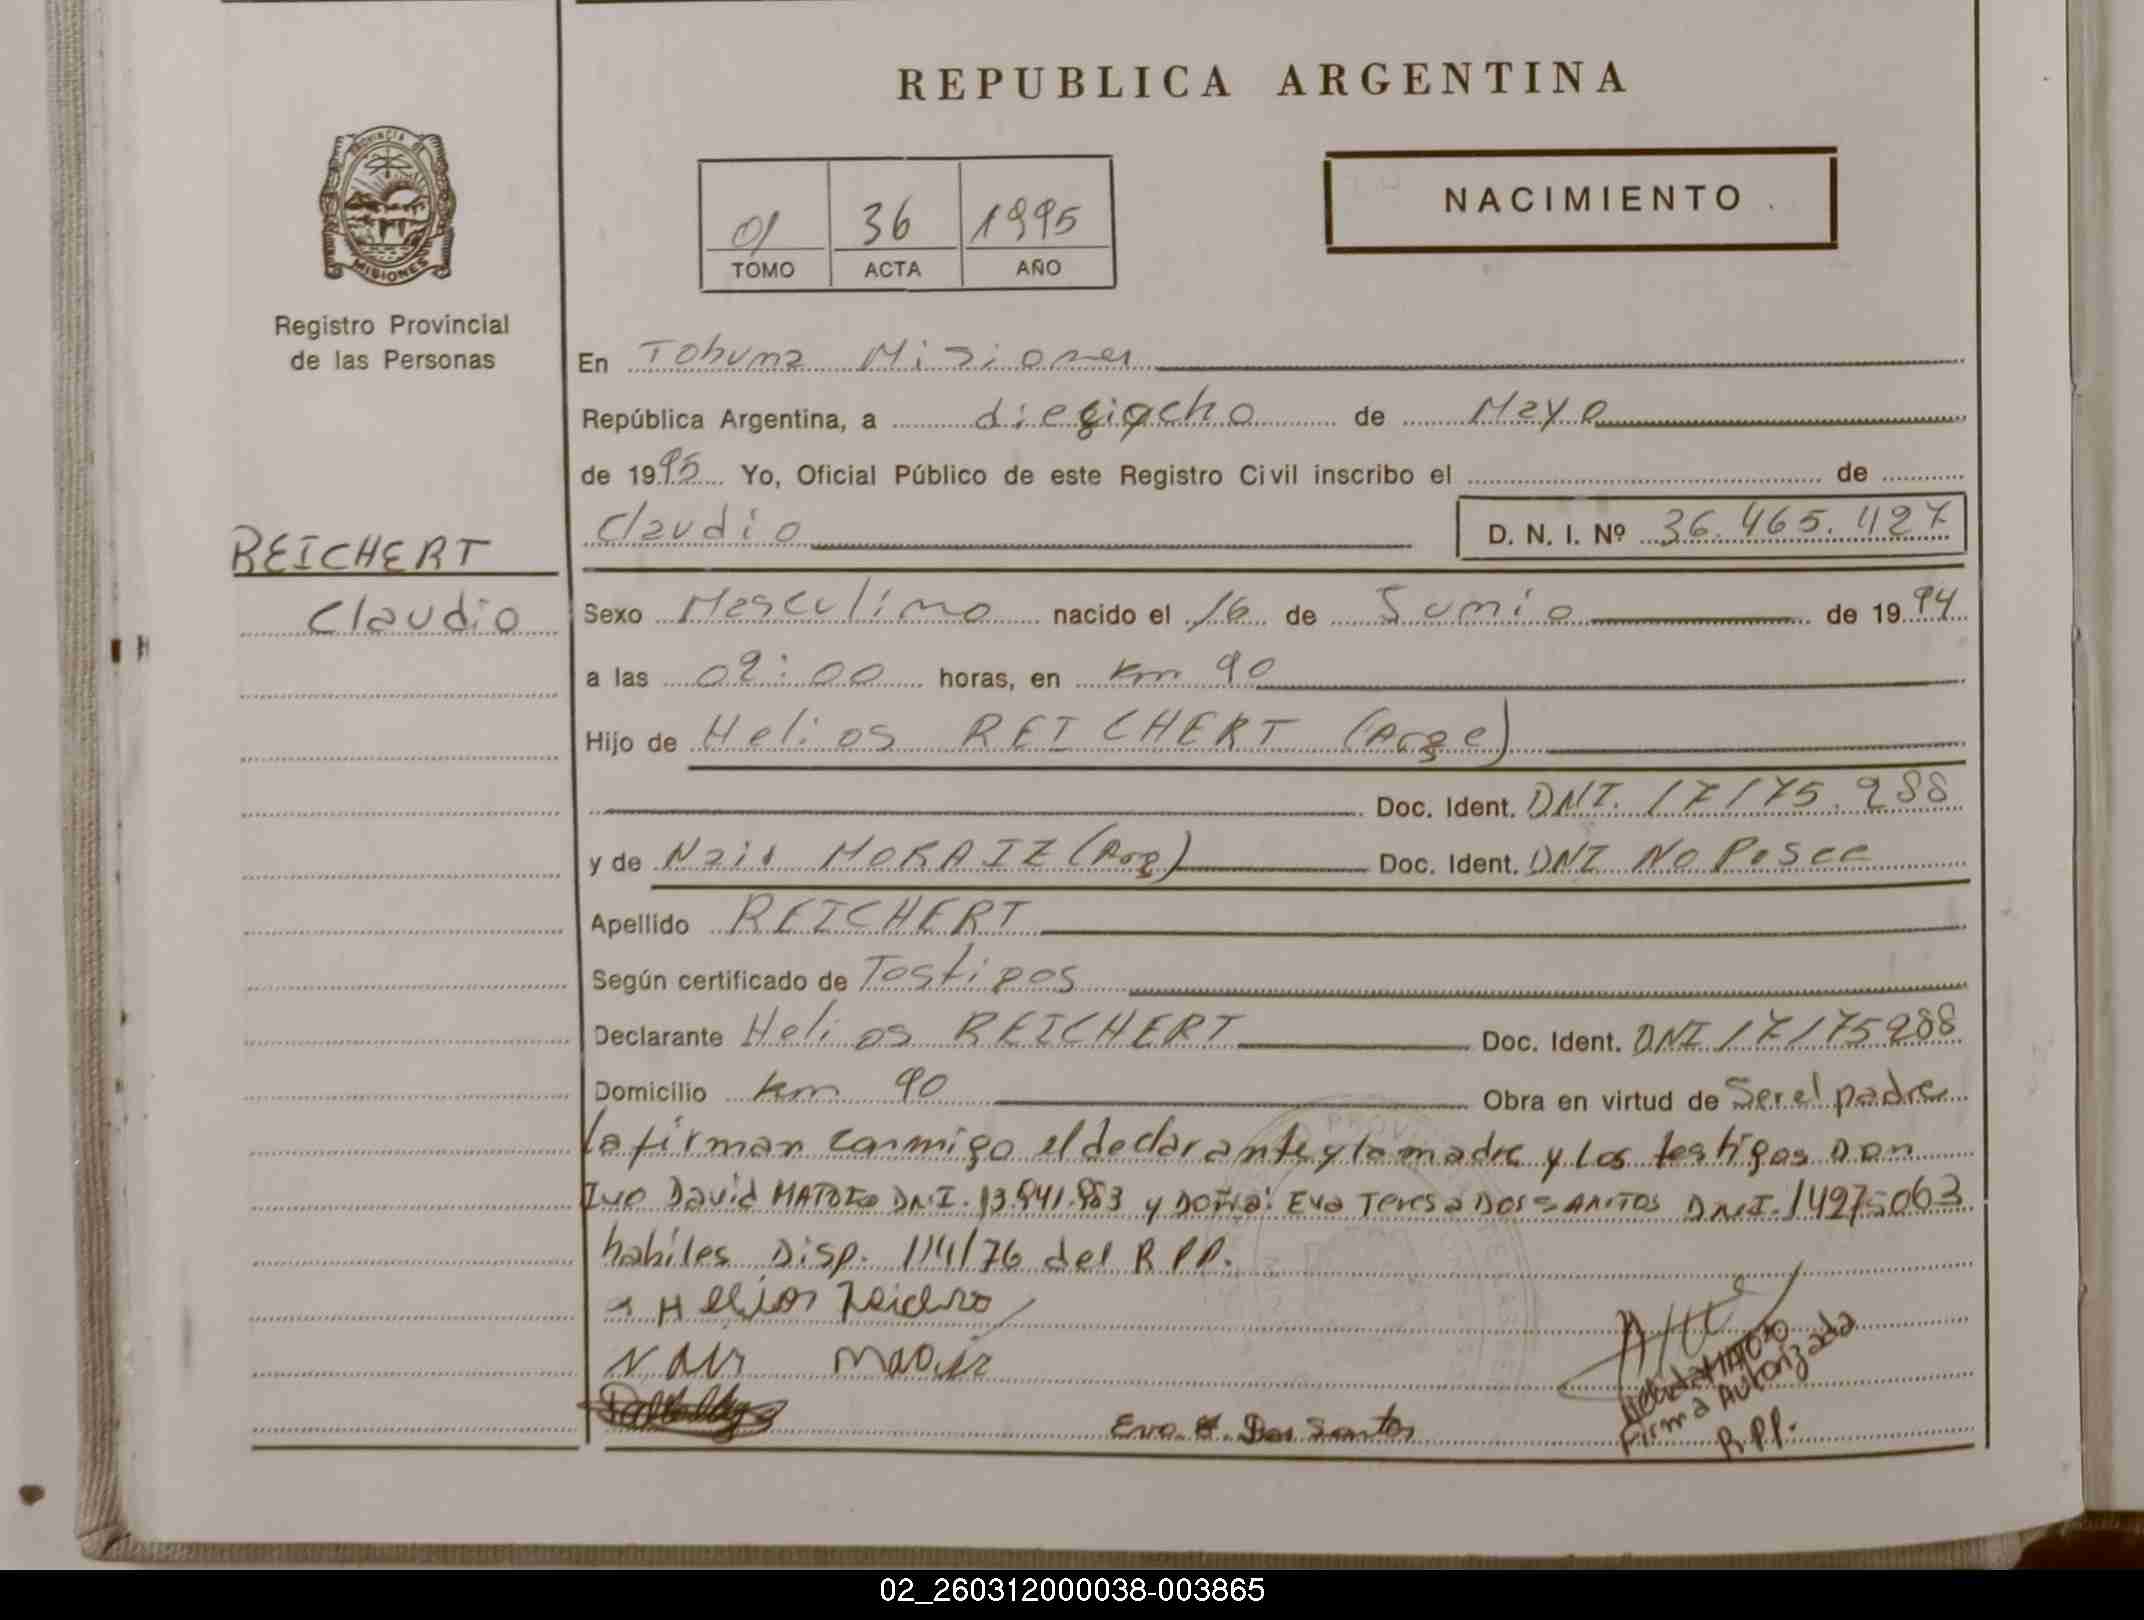 REPUBLICA ARGENTINA
NACIMIENTO
01 36 1995
TOMO ACTA AÑO
PROVINCIA DE
MISIONES
Registro Provincial
de las Personas
En Tobuna Misiones
República Argentina, a dieciocho de Mayo
de 1995 Yo, Oficial Público de este Registro Civil inscribo el de
Claudio D. N. I. Nº 36.465.427
REICHERT
Claudio
Sexo Masculino nacido el 16 de Junio de 1994
a las 02:00 horas, en Km 90
Hijo de Helios REICHERT (Arge)
Doc. Ident. DNI. 17175.288
y de Nair MORAIZ (Arg) Doc. Ident. DNI No Posee
Apellido REICHERT
Según certificado de Testigos
Declarante Helios REICHERT Doc. Ident. DNI 17175288
Domicilio Km 90 Obra en virtud de Ser el padre
la firman conmigo el declarante y la madre y los testigos Don
Ivo David MATOZO DNI. 13.841.983 y Doña: Eva Teresa DOS SANTOS DNI. 14975063
habiles Disp. 114/76 del RPP.
Helios
Nair
Eva Dos Santos
MATOZO
Firma Autorizada
R.P.P.
02_260312000038-003865